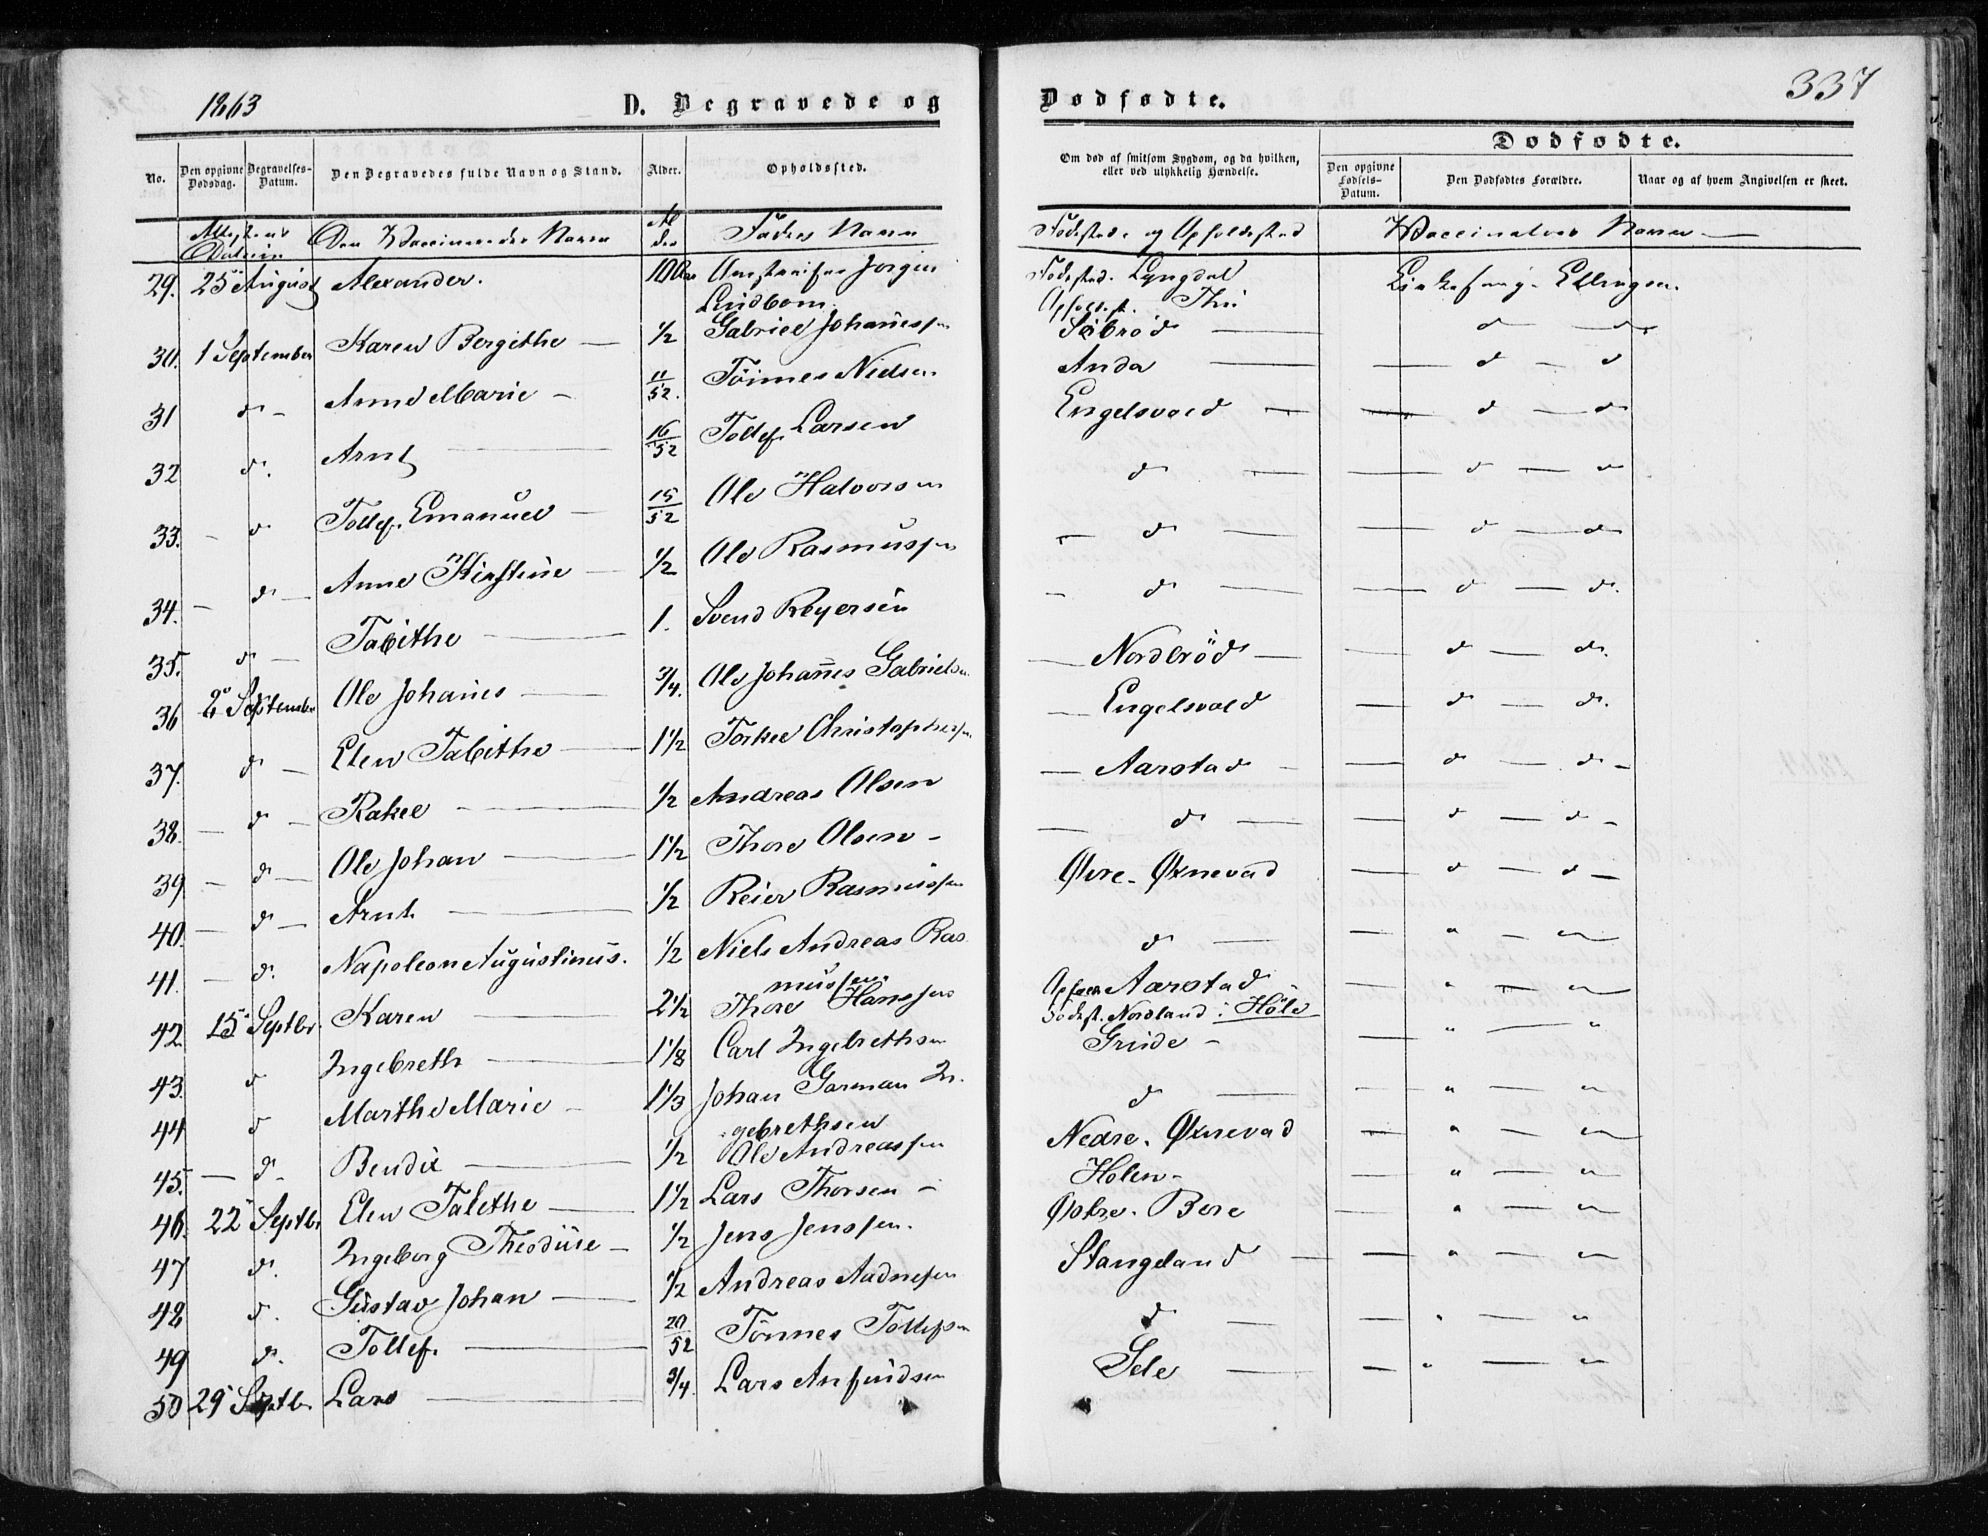 1863 D. Begravede og Dødfødte. 337
No. Den opgivne Dødsdag. Begravelses-Datum. Den Begravedes fulde Navn og Stand. Alder. Opholdssted. Om død af smitsom Sygdom, og da hvilken, eller ved ulykkelig Hændelse. Dødfødte. Den opgivne Fødsels-Datum. Den Dødfødtes Forældre. Naar og af hvem Angivelsen er skeet.
Attestens Datum Den Vaccineredes Navn Alder Fadres Navn Fødested og Opholdssted Vaccinatørs Navn —
29. 25 August Alexander. 10 Jørgen Lindbom Fødested. Lyngdal Opholdst. Thu Ellingsen.
30. 1 September Karen Bergithe — 1/2 Gabriel Johanessen Søbrød — d — d
31 d — Anne Marie — 11/52. Tönnes Nielsen Anda — d — d
32 d. Arnt — 16/52 Tollef Larsen Engelsvold — d — d
33. — d Tollef Emanuel — 15/52 Ole Halvorsen d — d — d
34. — d — Anne Kirstine — 1/2 Ole Rasmussen — d — d — d
35. d — Tabithe — 1. Svend Reyersen — d — d — d.
36 2 September Ole Johanes — 3/4. Ole Johannes Gabrielsen — Nordbröd — d — d.
37. d — Elen Tabithe — 1 1/2 Torkel Christophersen — Engelsvold — d — d.
38. — d — Rakel — 1/2 Andreas Olsen — Aarstad — d — d —
39 — d — Ole Johan — 1 1/2 Thore Olsen — — d — d — d —
40. — d — Arnt — 1/2 Reier Rasmussen Øvre Øxnevad — d — d —
41. — d. Napoleon Augustinus. 1/2 Niels Andreas Rasmussen d — " — "
42 15 Septbr. Karen — 2 1/2 Thore Hansen Aarstad Fødest. Nordland i Höle — " — "
43. d Ingebreth — 1 1/8 Carl Ingebrethsen Grude — " — "
44 d Marthe Marie — 1 1/3 Johan Garman Ingebrethsen d — " — "
45. — d — Bendix — 1/2 Ole Andreassen Nedre Øxnevad — " — "
46. 22 Septbr Elen Tabethe — 1 1/2 Lars Thorsen — Holen — — " — "
47 d. Ingeborg Theodine — 1/2 Jens Jenssen. Østre Bore — " — "
48 d. Gustav Johan — 1/2 Andreas Aadnesen Stangeland — " — "
49 d. Tollef. — 20/52 Tönnes Tollefsen d — " — "
50 29 Septbr Lars — 3/4. Lars Anfindsen Sele — " — "